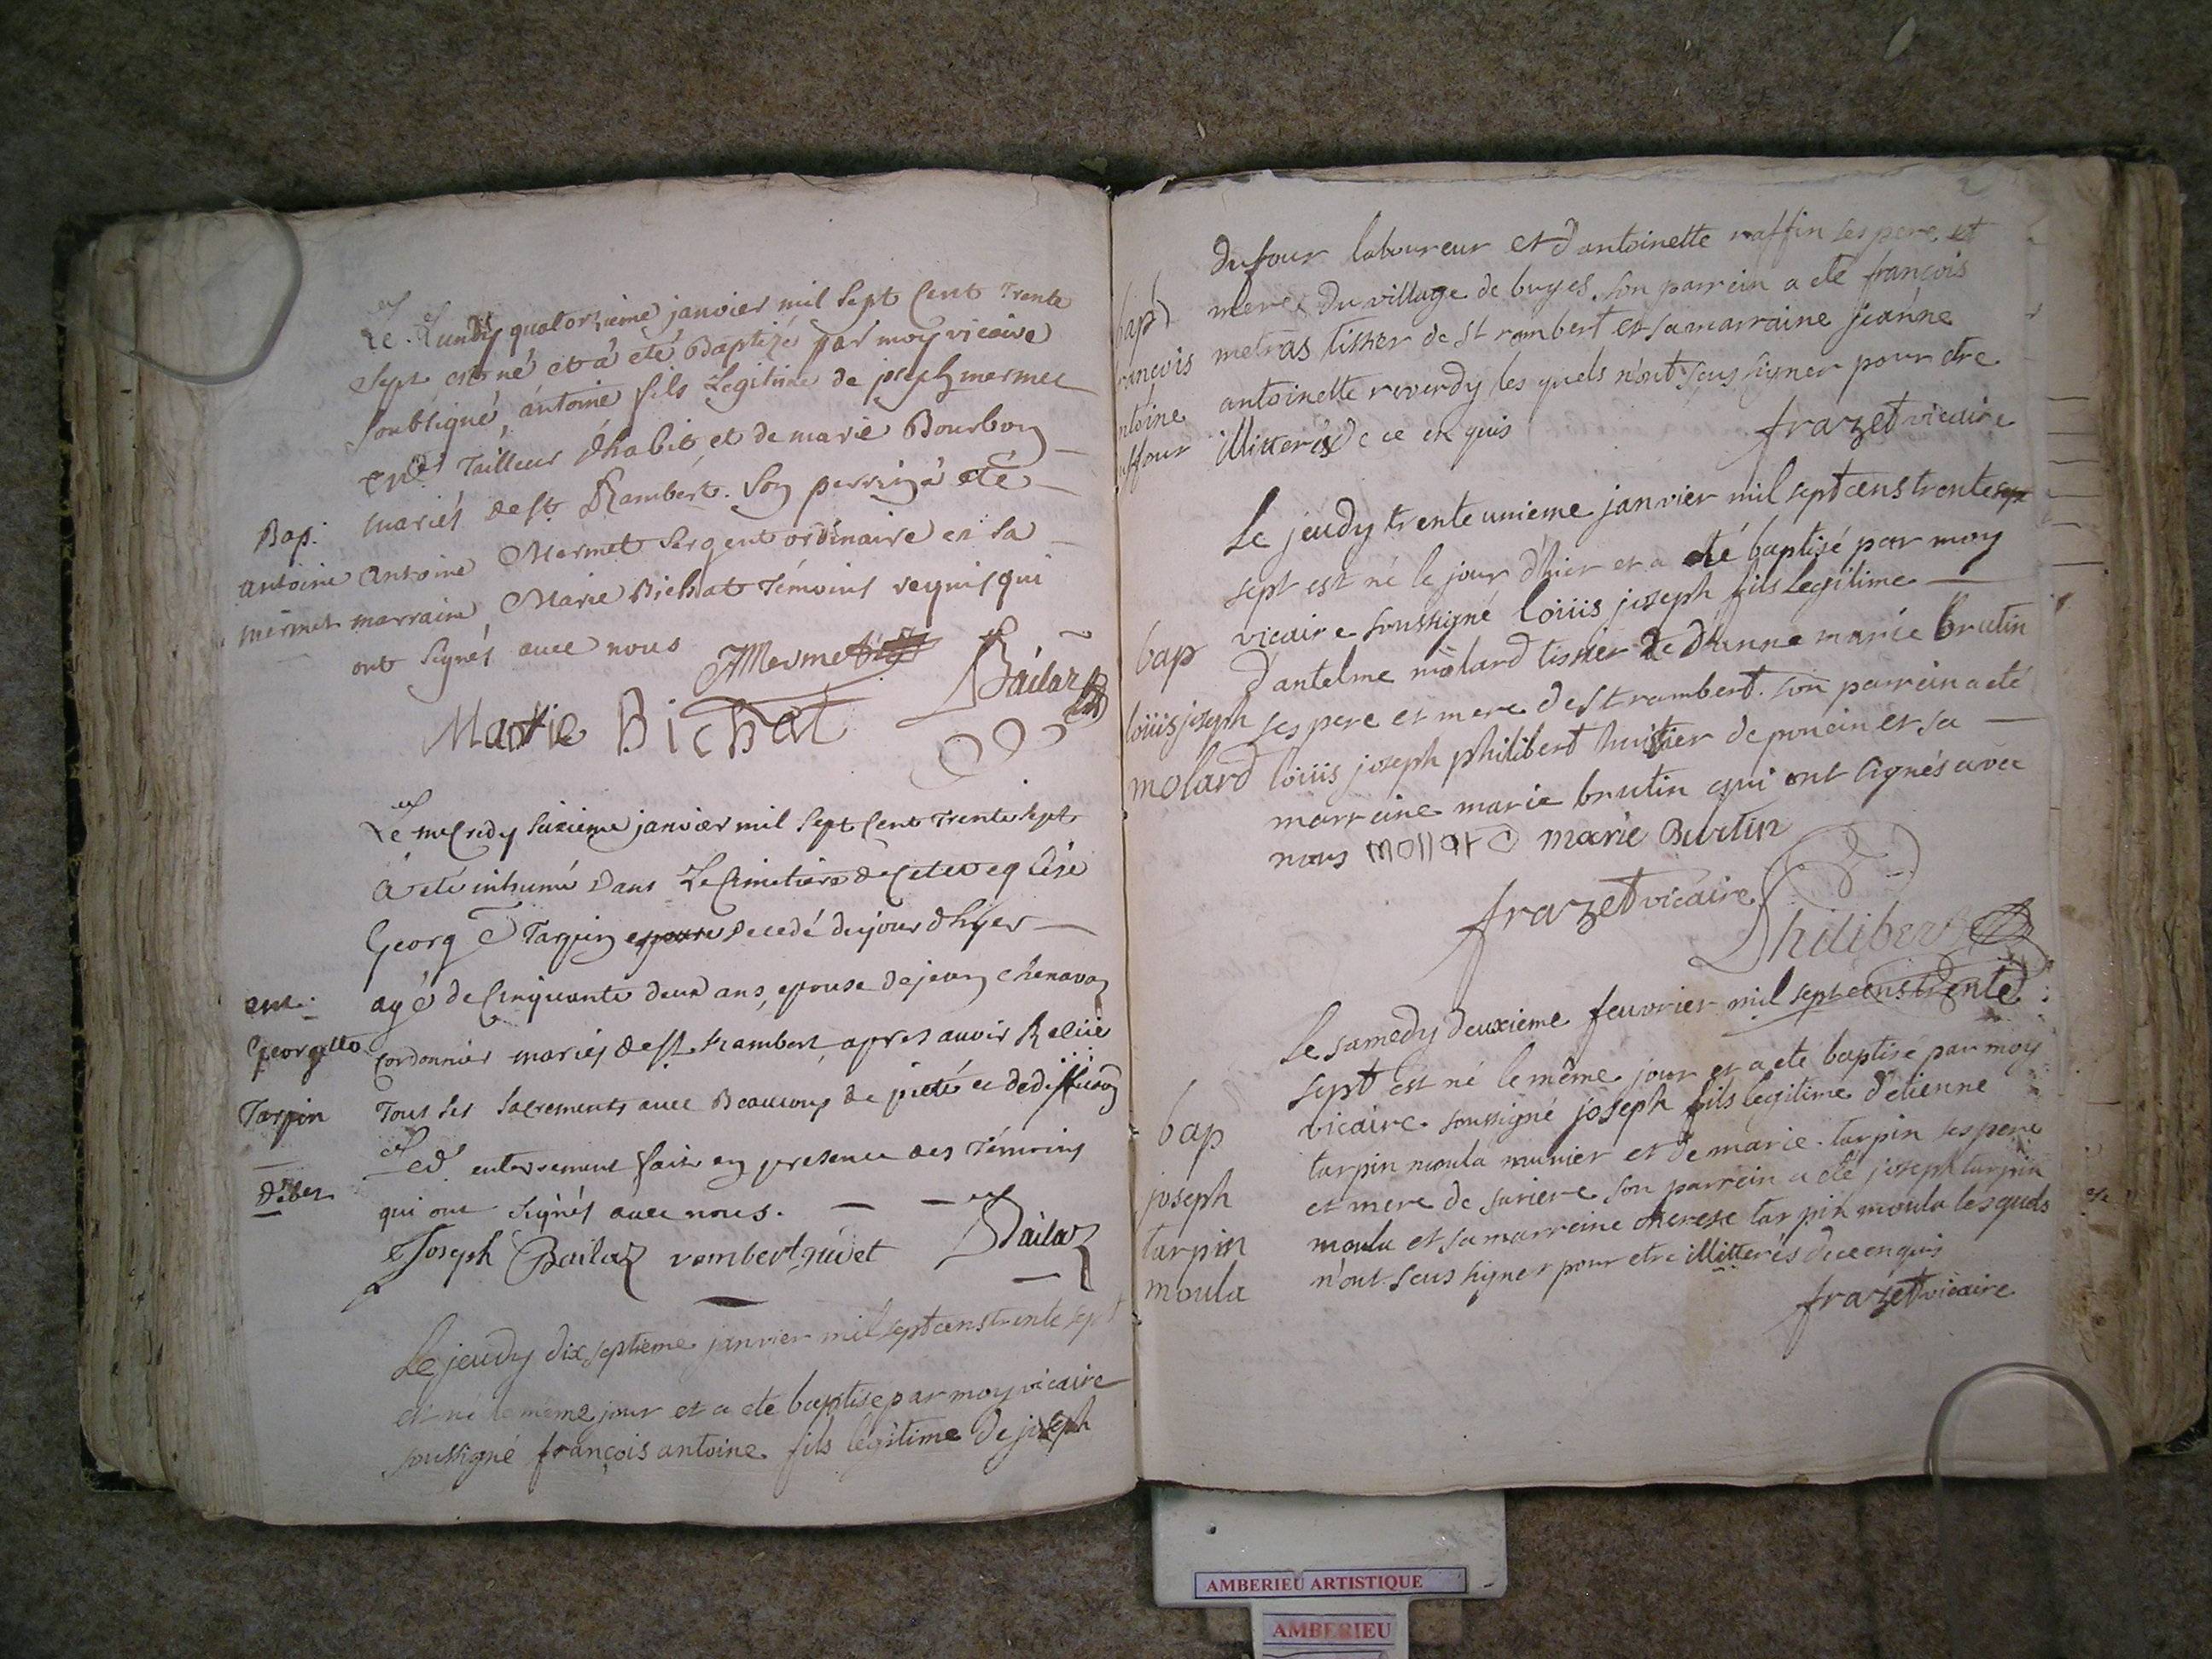 Le Lundy quatorzieme janvier mil Sept Cent Trente
Sept est né et a eté Baptizé par moy vicaire
Soubsigné, antoine fils Legitime de joseph mermet
Tailleur d'habit, et de marie Bourbon
mariés de st Rambert. Son parrin a été
Bap.
antoine
mermet
Antoine Mermet Sergent ordinaire et sa
marraine Marie Bichat Témoins requis qui
ont Signés avec nous
AMermet
Bailaz
Marie Bichat
Le mecredy Seizieme janvier mil Sept Cent Trente Sept
à eté inhumé dans Le Cimetiere de Cete eglise
Georg Tarpin epouse decedé du jour d'hyer
agé de Cinquante deux ans, epouse de jean chenavon
Cordonnier mariés de st Rambert apres avoir
ent.
Georgette
Tarpin
Tous ses Sacrements avec Beaucoup de pieté et
Led. enterrement fait en presence des Témoins
qui ont Signés avec nous.
Joseph Bailaz rembert juvet Bailaz
Le jeudy dix septieme janvier mil sept cens trente sept
est né le même jour et a eté baptisé par moy vicaire
soussigné françois antoine fils legitime de joseph
bap
françois
antoine
duffour
Dufour laboureur et d'antoinette raffin ses pere et
mere du village de buges. son parrein a eté françois
metras tissier de st rambert et sa marraine jeanne
antoinette reverdy les quels n'ont sçus signer pour etre
illitterés de ce enquis
frazet vicaire
Le jeudy trente unieme janvier mil sept cens trente
sept est né le jour d'hier et a eté baptisé par moy
vicaire soussigné loüis joseph fils legitime
d'antelme molard tissier et d'anne marie brutin
ses pere et mere de st rambert. son parrein a eté
loüis joseph philibert huissier de poncin et sa
marraine marie brutin qui ont signés avec
nous mollard marie Burtin
bap
loüis joseph
molard
frazet vicaire
Philibert
Le samedy deuxieme feuvrier mil sept cens trente
sept est né le même jour et a eté baptisé par moy
vicaire soussigné joseph fils legitime d'etienne
tarpin moula munier et de marie tarpin ses pere
et mere de suriere son parrein a eté joseph tarpin
moula et sa marreine therese tarpin moula lesquels
n'ont sçus signer pour etre illitterés de ce enquis
bap
joseph
tarpin
moula
frazet vicaire
AMBERIEU ARTISTIQUE
AMBERIEU